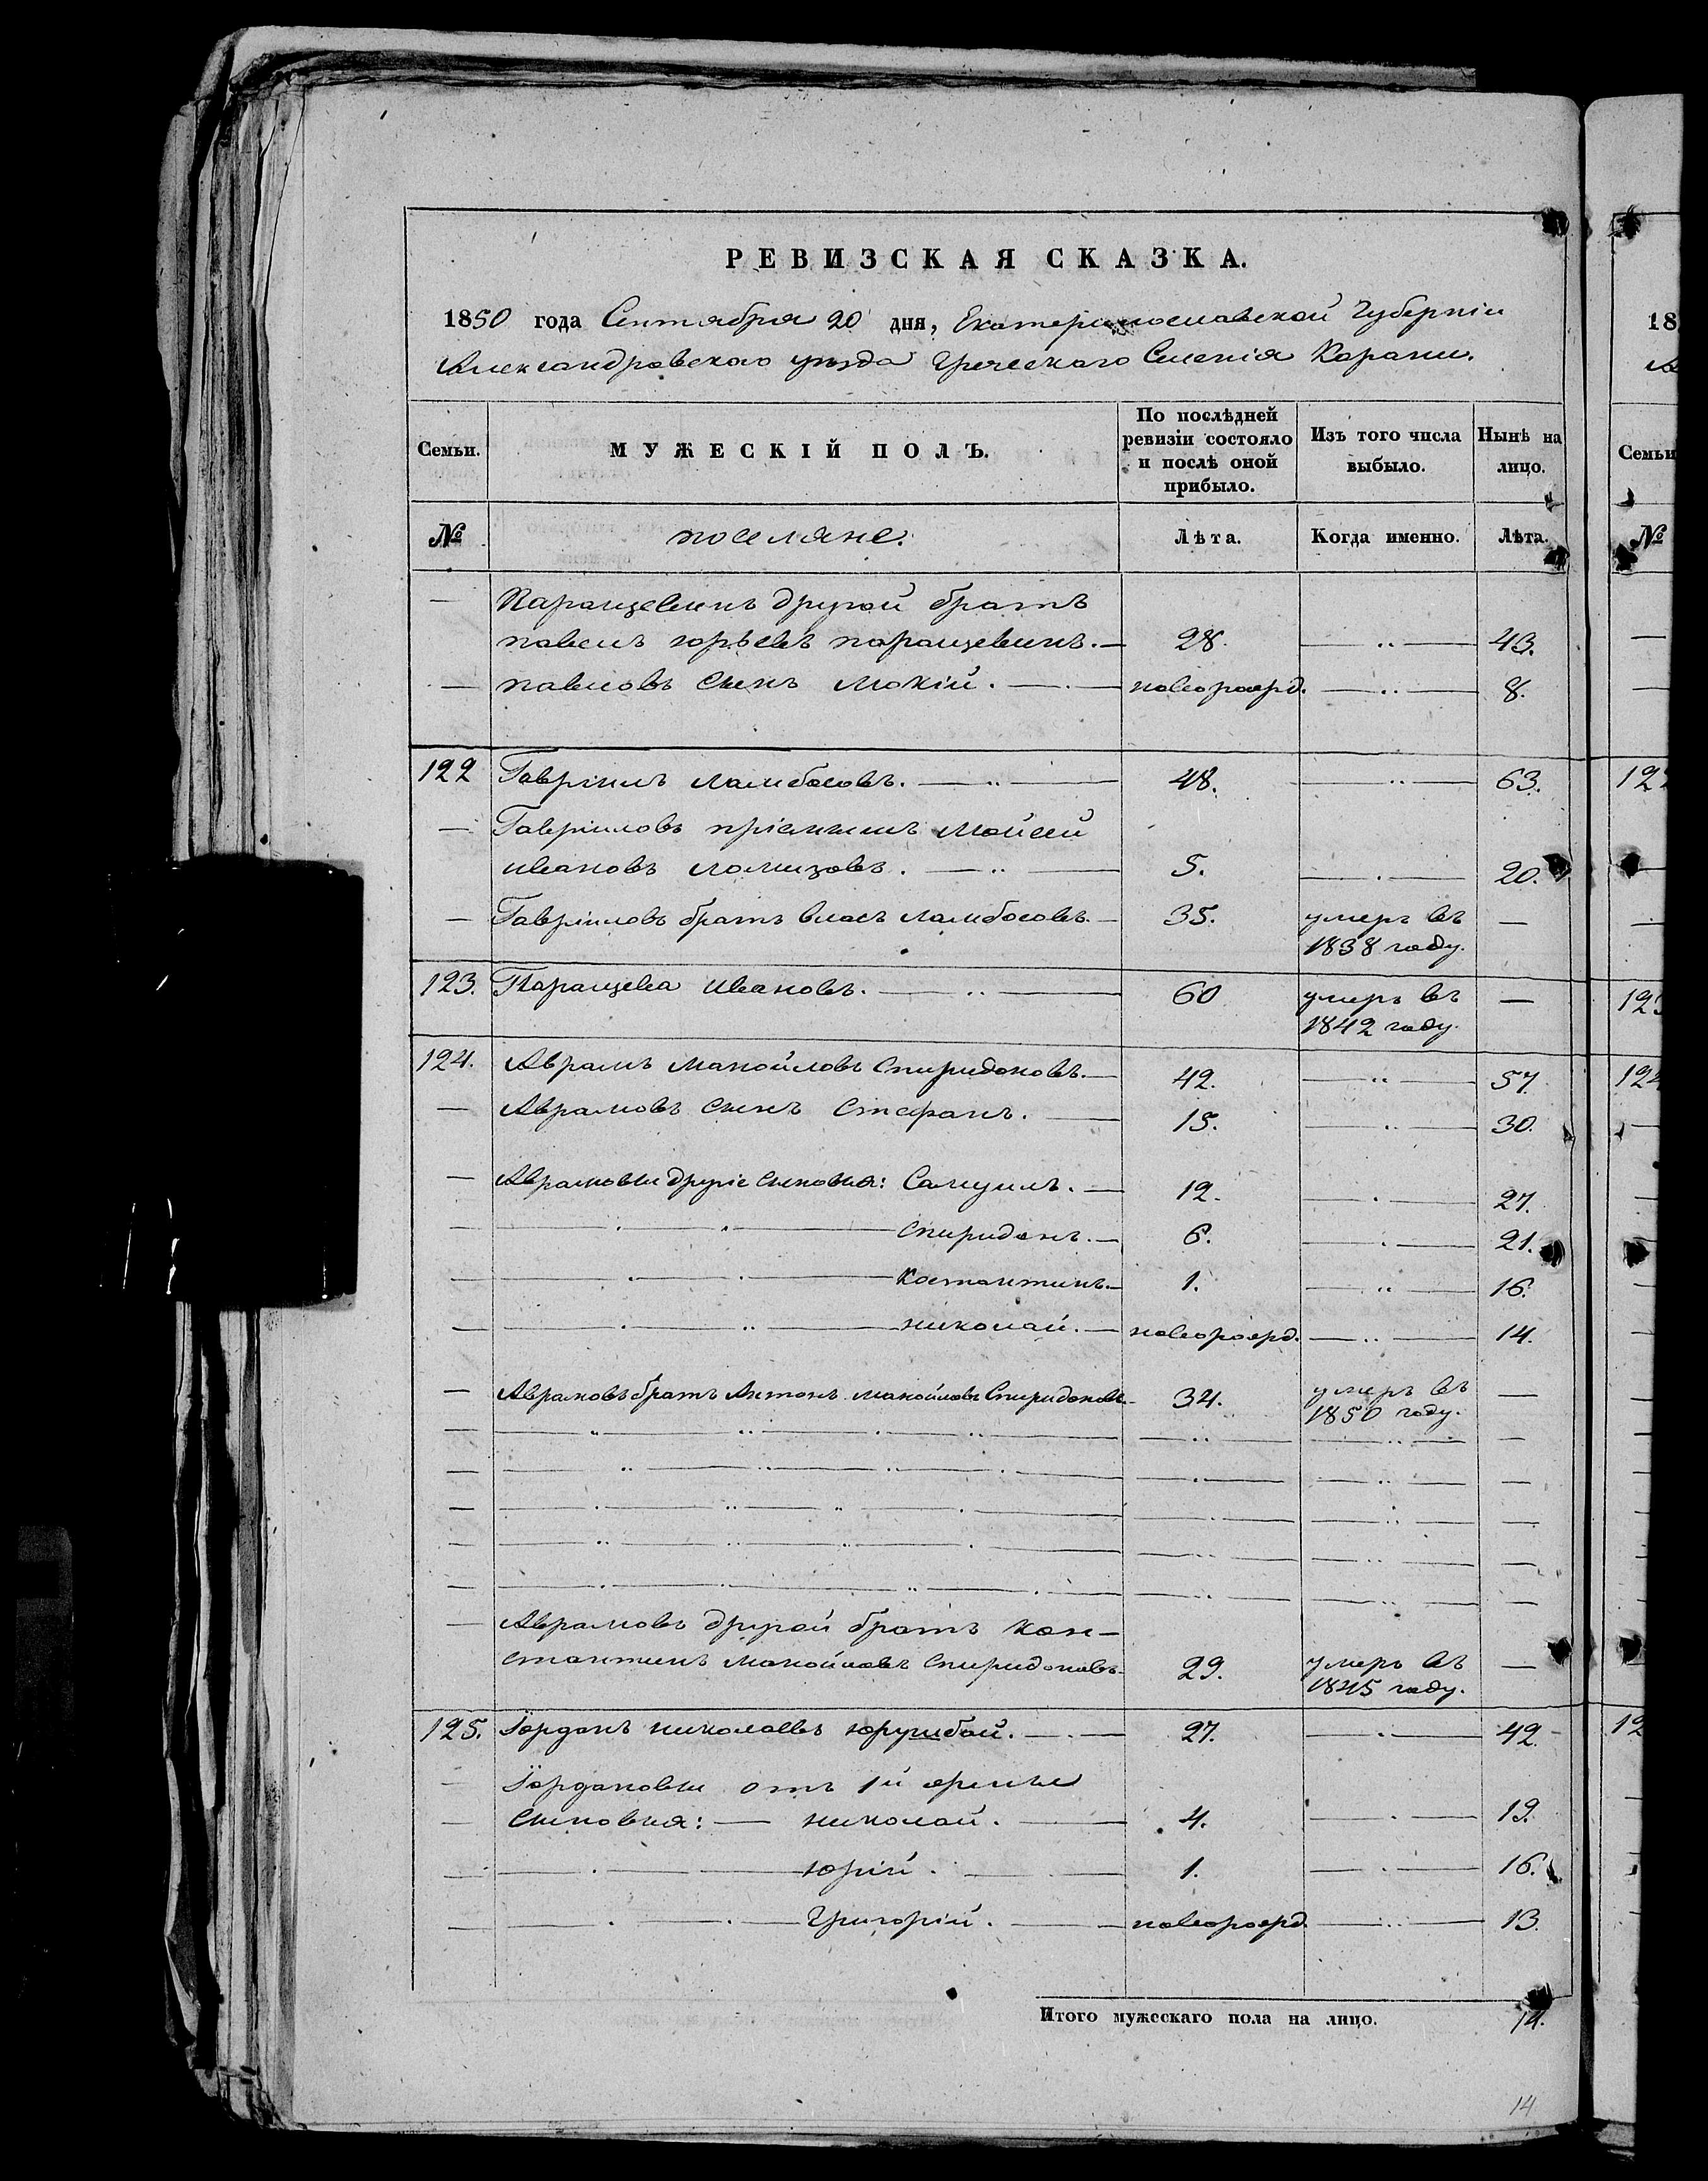 РЕВИЗСКАЯ СКАЗКА.
1850 года Сентября 20 дня, Екатеринославской Губерніи
Александровскаго уѣзда Греческаго Селенія Карани.
Семьи. МУЖЕСКІЙ ПОЛЪ. По послѣдней ревизіи состояло и послѣ оной прибыло. Изъ того числа выбыло. Нынѣ на лицо.
№ поселяне. Лѣта. Когда именно. Лѣта.
— Паращевинъ другой братъ
павелъ юрьевъ паращевинъ. — 28. — 43.
— павловъ сынъ Мокій. — новорожд. — 8.
122 Гавріилъ Ламбосовъ. — 48. — 63.
— Гавріиловъ пріемышъ Моисей
ивановъ ломизовъ. — 5. — 20.
— Гавріиловъ братъ власъ Ламбосовъ. — 35. умеръ въ 1838 году. —
123. Паращева Ивановъ. — 60 умеръ въ 1842 году. —
124. Аврамъ манойловъ Спиридоновъ. — 42. — 57
— Аврамовъ сынъ Стефанъ. — 15. — 30.
— Аврамовы другіе сыновья: Самуилъ. — 12. — 27.
— Спиридонъ. — 6. — 21.
— Костантинъ. — 1. — 16.
— николай. — новорожд. — 14.
— Аврамовъ братъ Антонъ манойловъ Спиридоновъ. — 34. умеръ въ 1850 году. —
— Аврамовъ другой братъ кон-
стантинъ манойловъ Спиридоновъ — 29. умеръ въ 1845 году. —
125. Іорданъ николаевъ юрушбай. — 27. — 42.
— Іордановы отъ 1й жены
— сыновья: — николай. — 4. — 19.
— юрій. — 1. — 16.
— Григорій. — новорожд. — 13.
Итого мужескаго пола на лицо. 14.
14
18
Семьи
№
122
123
124
12